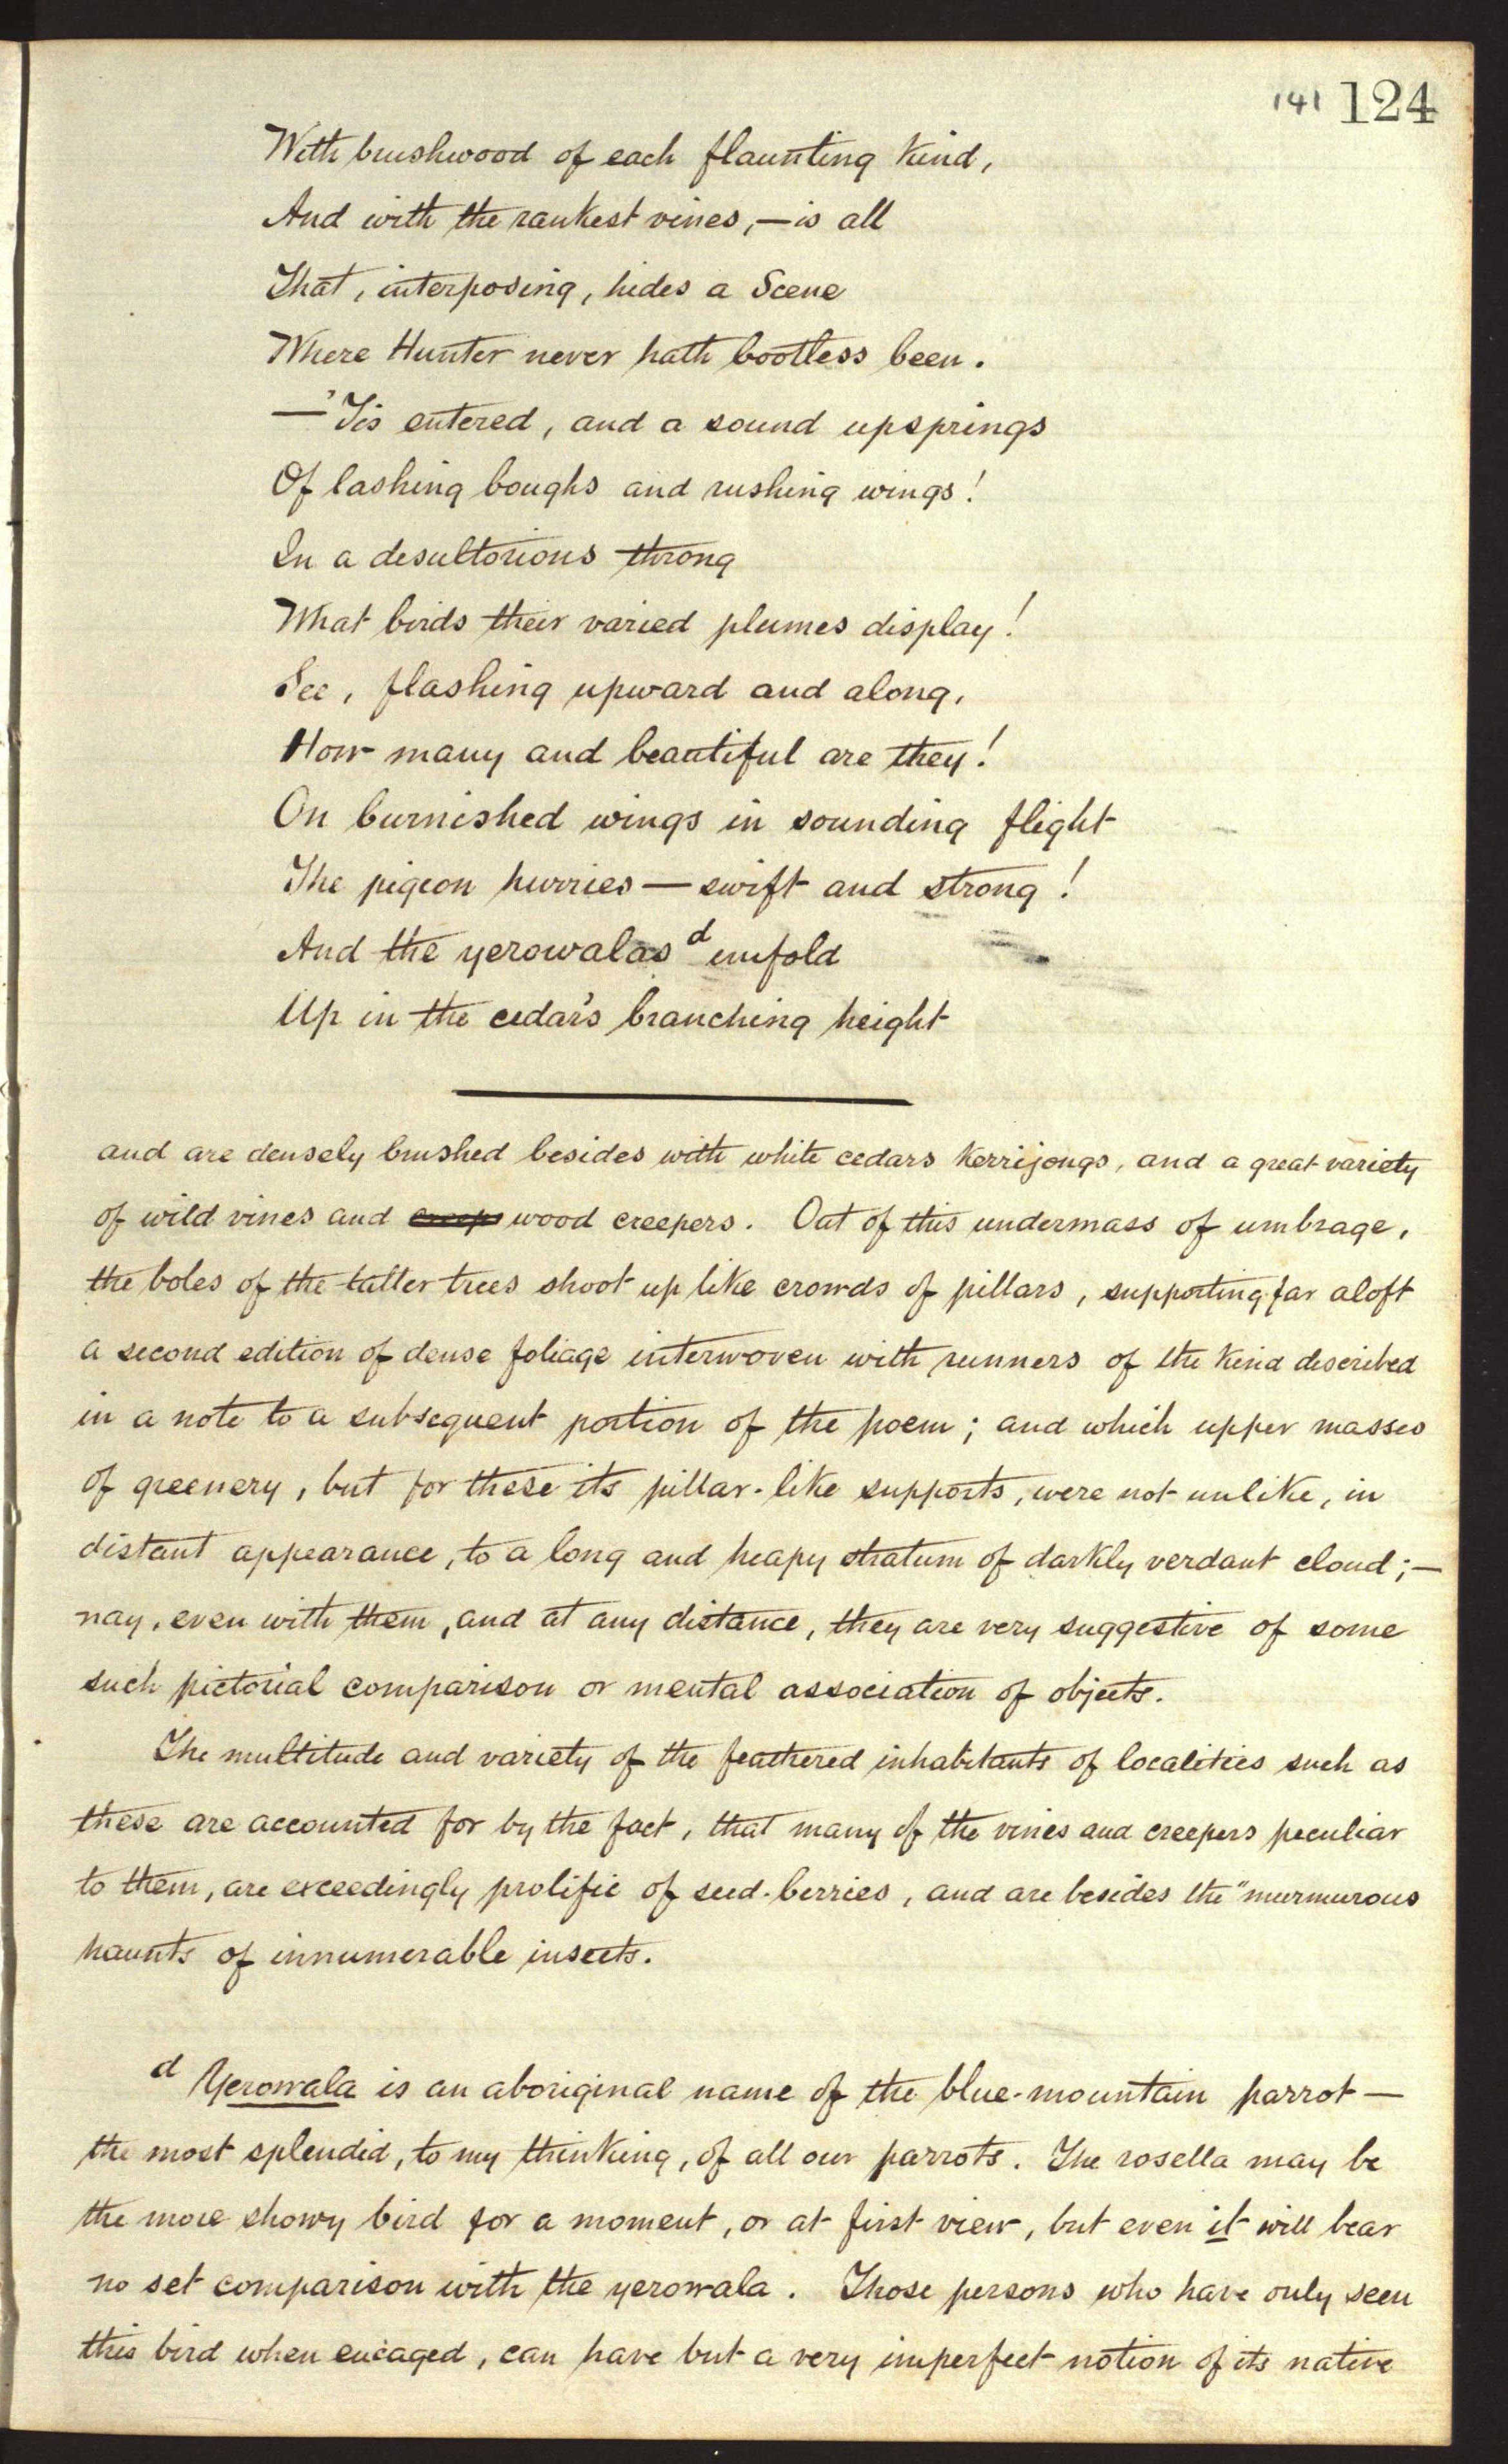 141 124
With brushwood of each flaunting kind,
And with the rankest vines,—is all
That, interposing, hides a Scene
Where Hunter never hath bootless been.
—'Tis entered, and a sound upsprings
Of lashing boughs and rushing wings!
In a desultorious throng
What birds their varied plumes display!
See, flashing upward and along,
How many and beautiful are they!
On burnished wings in sounding flight
The pigeon hurries—swift and strong!
And the yerowalas d unfold
Up in the cedar's branching height
and are densely brushed besides with white cedars Kerrijongs, and a great variety
of wild vines and creep wood creepers. Out of this undermass of umbrage,
the boles of the taller trees shoot up like crowds of pillars, supporting far aloft
a second edition of dense foliage interwoven with runners of the kind described
in a note to a subsequent portion of the poem; and which upper masses
of greenery, but for these its pillar-like supports, were not unlike, in
distant appearance, to a long and heapy stratum of darkly verdant cloud;—
nay, even with them, and at any distance, they are very suggestive of some
such pictorial comparison or mental association of objects.
The multitude and variety of the feathered inhabitants of localities such as
these are accounted for by the fact, that many of the vines and creepers peculiar
to them, are exceedingly prolific of seed-berries, and are besides the "murmurous
haunts of innumerable insects.
d Yerowala is an aboriginal name of the blue-mountain parrot—
the most splendid, to my thinking, of all our parrots. The rosella may be
the more showy bird for a moment, or at first view, but even it will bear
no set comparison with the yerowala. Those persons who have only seen
this bird when encaged, can have but a very imperfect notion of its native